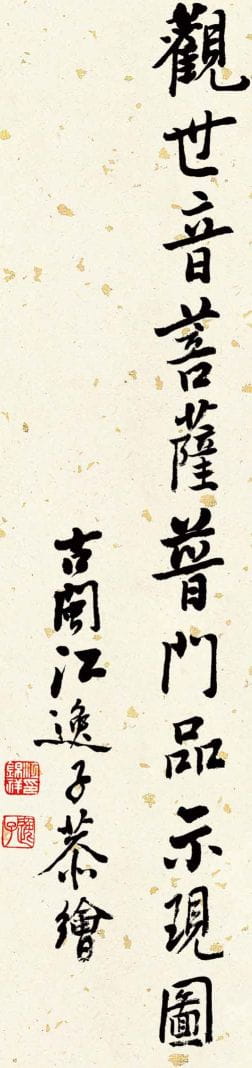 觀世音菩薩普門品示現圖
古閩江逸子恭繪